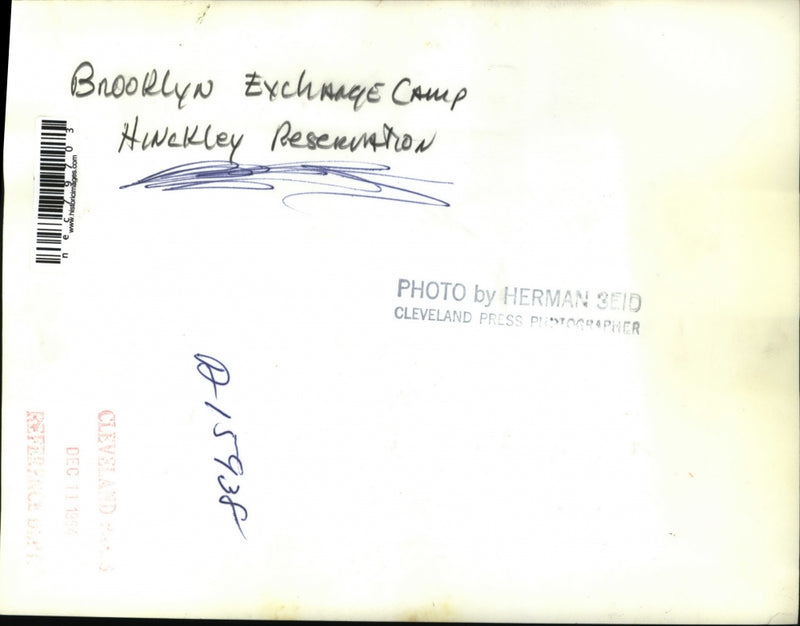 Brooklyn Exchange Camp
Hinckley Reservation
nec79703
www.historicimages.com
PHOTO by HERMAN SEID
CLEVELAND PRESS PHOTOGRAPHER
CLEVELAND
DEC 11
REFERENCE DEPT.